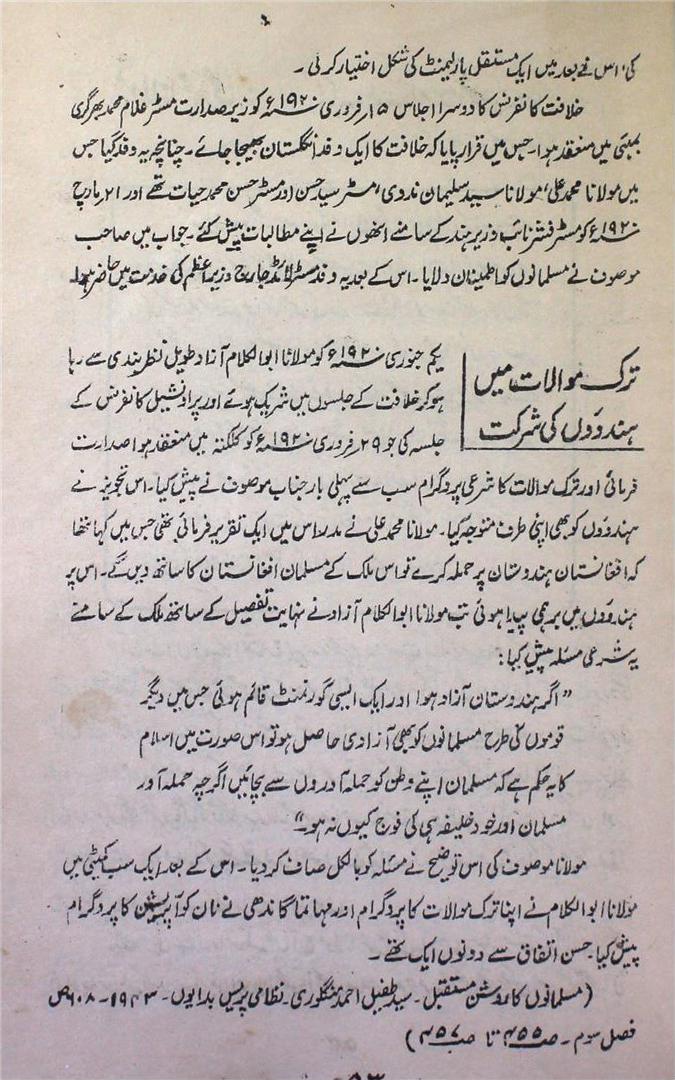 کی، اس نے بعد میں ایک مستقل پارلیمنٹ کی شکل اختیار کر لی ۔
خلافت کانفرنس کا دوسرا اجلاس ۱۵ فروری ۱۹۲۰ء کو زیر صدارت مسٹر غلام محمد بھرگری
بمبئی میں منعقد ہوا۔ جس میں قرار پایا کہ خلافت کا ایک وفد انگلستان بھیجا جائے ۔ چنانچہ یہ وفد گیا جس
میں مولانا محمد علی، مولانا سید سلیمان ندوی، مسٹر سید حسن اور مسٹر حسن محمد حیات تھے اور ۲۱ مارچ
۱۹۲۰ء کو مسٹر فشر نائب وزیر ہند کے سامنے انھوں نے اپنے مطالبات پیش کئے ۔ جواب میں صاحب
موصوف نے مسلمانوں کو اطمینان دلایا ۔ اس کے بعد یہ وفد مسٹر لائڈ جارج وزیر اعظم کی خدمت میں حاضر ہوا۔
ترک موالات میں
ہندوؤں کی شرکت
یکم جنوری ۱۹۲۰ء کو مولانا ابوالکلام آزاد طویل نظر بندی سے رہا
ہوکر خلافت کے جلسوں میں شریک ہوئے اور پراونشیل کانفرنس کے
جلسہ کی جو ۲۹ فروری ۱۹۲۰ء کو کلکتہ میں منعقد ہوا صدارت
فرمائی اور ترک موالات کا شرعی پروگرام سب سے پہلی بار جناب موصوف نے پیش کیا۔ اس تجویز نے
ہندوؤں کو بھی اپنی طرف متوجہ کیا۔ مولانا محمد علی نے مدراس میں ایک تقریر فرمائی تھی جس میں کہا تھا
کہ افغانستان ہندوستان پر حملہ کرے تو اس ملک کے مسلمان افغانستان کا ساتھ دیں گے۔ اس پر
ہندوؤں میں برہمی پیدا ہوئی تب مولانا ابوالکلام آزاد نے نہایت تفصیل کے ساتھ ملک کے سامنے
یہ شرعی مسئلہ پیش کیا :
" اگر ہندوستان آزاد ہوا اور ایک ایسی گورنمنٹ قائم ہوئی جس میں دیگر
قوموں کی طرح مسلمانوں کو بھی آزادی حاصل ہو تو اس صورت میں اسلام
کا یہ حکم ہے کہ مسلمان اپنے وطن کو حملہ آوروں سے بچائیں اگرچہ حملہ آور
مسلمان اور خود خلیفہ ہی کی فوج کیوں نہ ہو۔"
مولانا موصوف کی اس توضیح نے مسئلہ کو بالکل صاف کر دیا ۔ اس کے بعد ایک سب کمیٹی میں
مولانا ابوالکلام نے اپنا ترک موالات کا پروگرام اور مہاتما گاندھی نے نان کوآپریشن کا پروگرام
پیش کیا۔ حسن اتفاق سے دونوں ایک تھے ۔
(مسلمانوں کا روشن مستقبل ۔ سید طفیل احمد منگلوری ۔ نظامی پریس بدایوں ۔ ۱۹۴۳ ۔ ۶۰۸ ص
فصل سوم ۔ ص ۴۵۵ تا ص ۴۵۷)